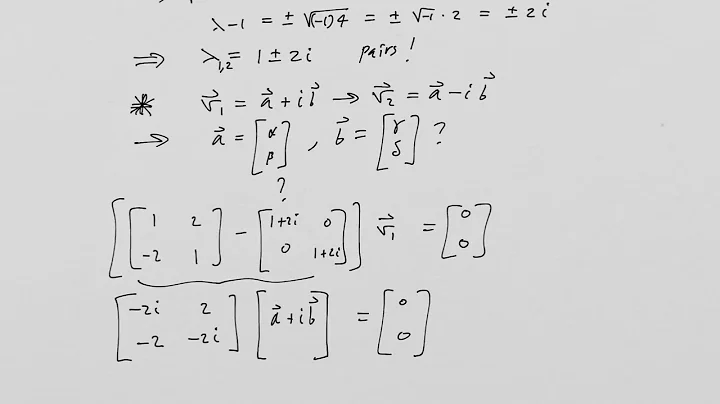 λ-1 = ± √(-1)4 = ± √-1 · 2 = ± 2i
⇒ λ₁,₂ = 1 ± 2i pairs!
* v⃗₁ = a⃗ + i b⃗ → v⃗₂ = a⃗ - i b⃗
→ a⃗ = [α β], b⃗ = [γ δ] ?
?
[[1 2 -2 1] - [1+2i 0 0 1+2i]] v⃗₁ = [0 0]
[-2i 2 -2 -2i] [a⃗ + i b⃗] = [0 0]